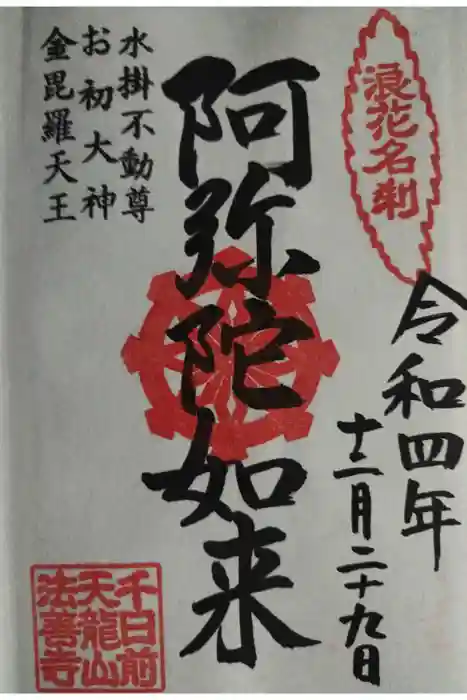 浪花名刹
令和四年
十二月二十九日
阿弥陀如来
水掛不動尊
お初大神
金毘羅天王
千日前
天龍山
法善寺